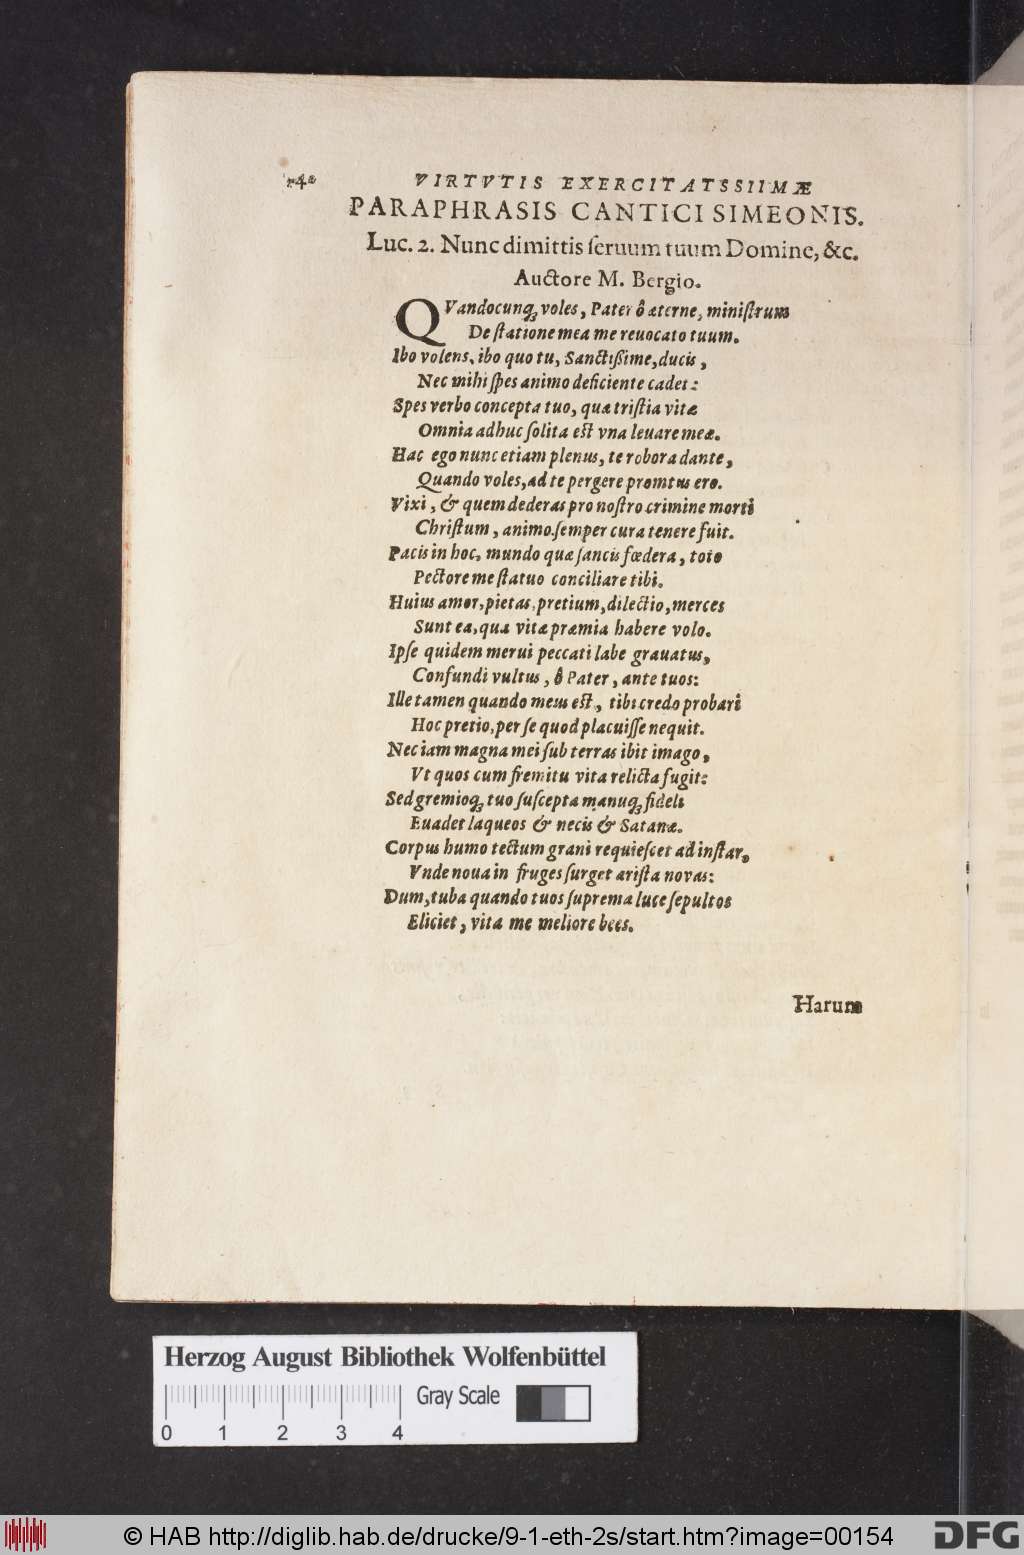 142 VIRTVTIS EXERCITATSSIIMÆ
PARAPHRASIS CANTICI SIMEONIS.
Luc. 2. Nunc dimittis ſeruum tuum Domine, &c.
Auctore M. Bergio.
QVandocunq; voles, Pater ô æterne, miniſtrum
De ſtatione mea me reuocato tuum.
Ibo volens, ibo quo tu, Sanctißime, ducis,
Nec mihi ſpes animo deficiente cadet:
Spes verbo concepta tuo, quæ triſtia vitæ
Omnia adhuc ſolita eſt vna leuare meæ.
Hac ego nunc etiam plenus, te robora dante,
Quando voles, ad te pergere promtus ero.
Vixi, & quem dederas pro noſtro crimine morti
Chriſtum, animo ſemper cura tenere fuit.
Pacis in hoc, mundo quæ ſancis fœdera, toto
Pectore me ſtatuo conciliare tibi.
Huius amor, pietas, pretium, dilectio, merces
Sunt ea, quæ vitæ præmia habere volo.
Ipſe quidem merui peccati labe grauatus,
Confundi vultus, ô Pater, ante tuos:
Ille tamen quando meus eſt, tibi credo probari
Hoc pretio, per ſe quod placuiſſe nequit.
Nec iam magna mei ſub terras ibit imago,
Vt quos cum fremitu vita relicta fugit:
Sed gremioq; tuo ſuſcepta manuq; fideli
Euadet laqueos & necis & Satanæ.
Corpus humo tectum grani requieſcet ad inſtar,
Vnde noua in fruges ſurget ariſta novas:
Dum, tuba quando tuos ſuprema luce ſepultos
Eliciet, vita me meliore bees.
Harum
Herzog August Bibliothek Wolfenbüttel
Gray Scale
0 1 2 3 4
© HAB http://diglib.hab.de/drucke/9-1-eth-2s/start.htm?image=00154
DFG